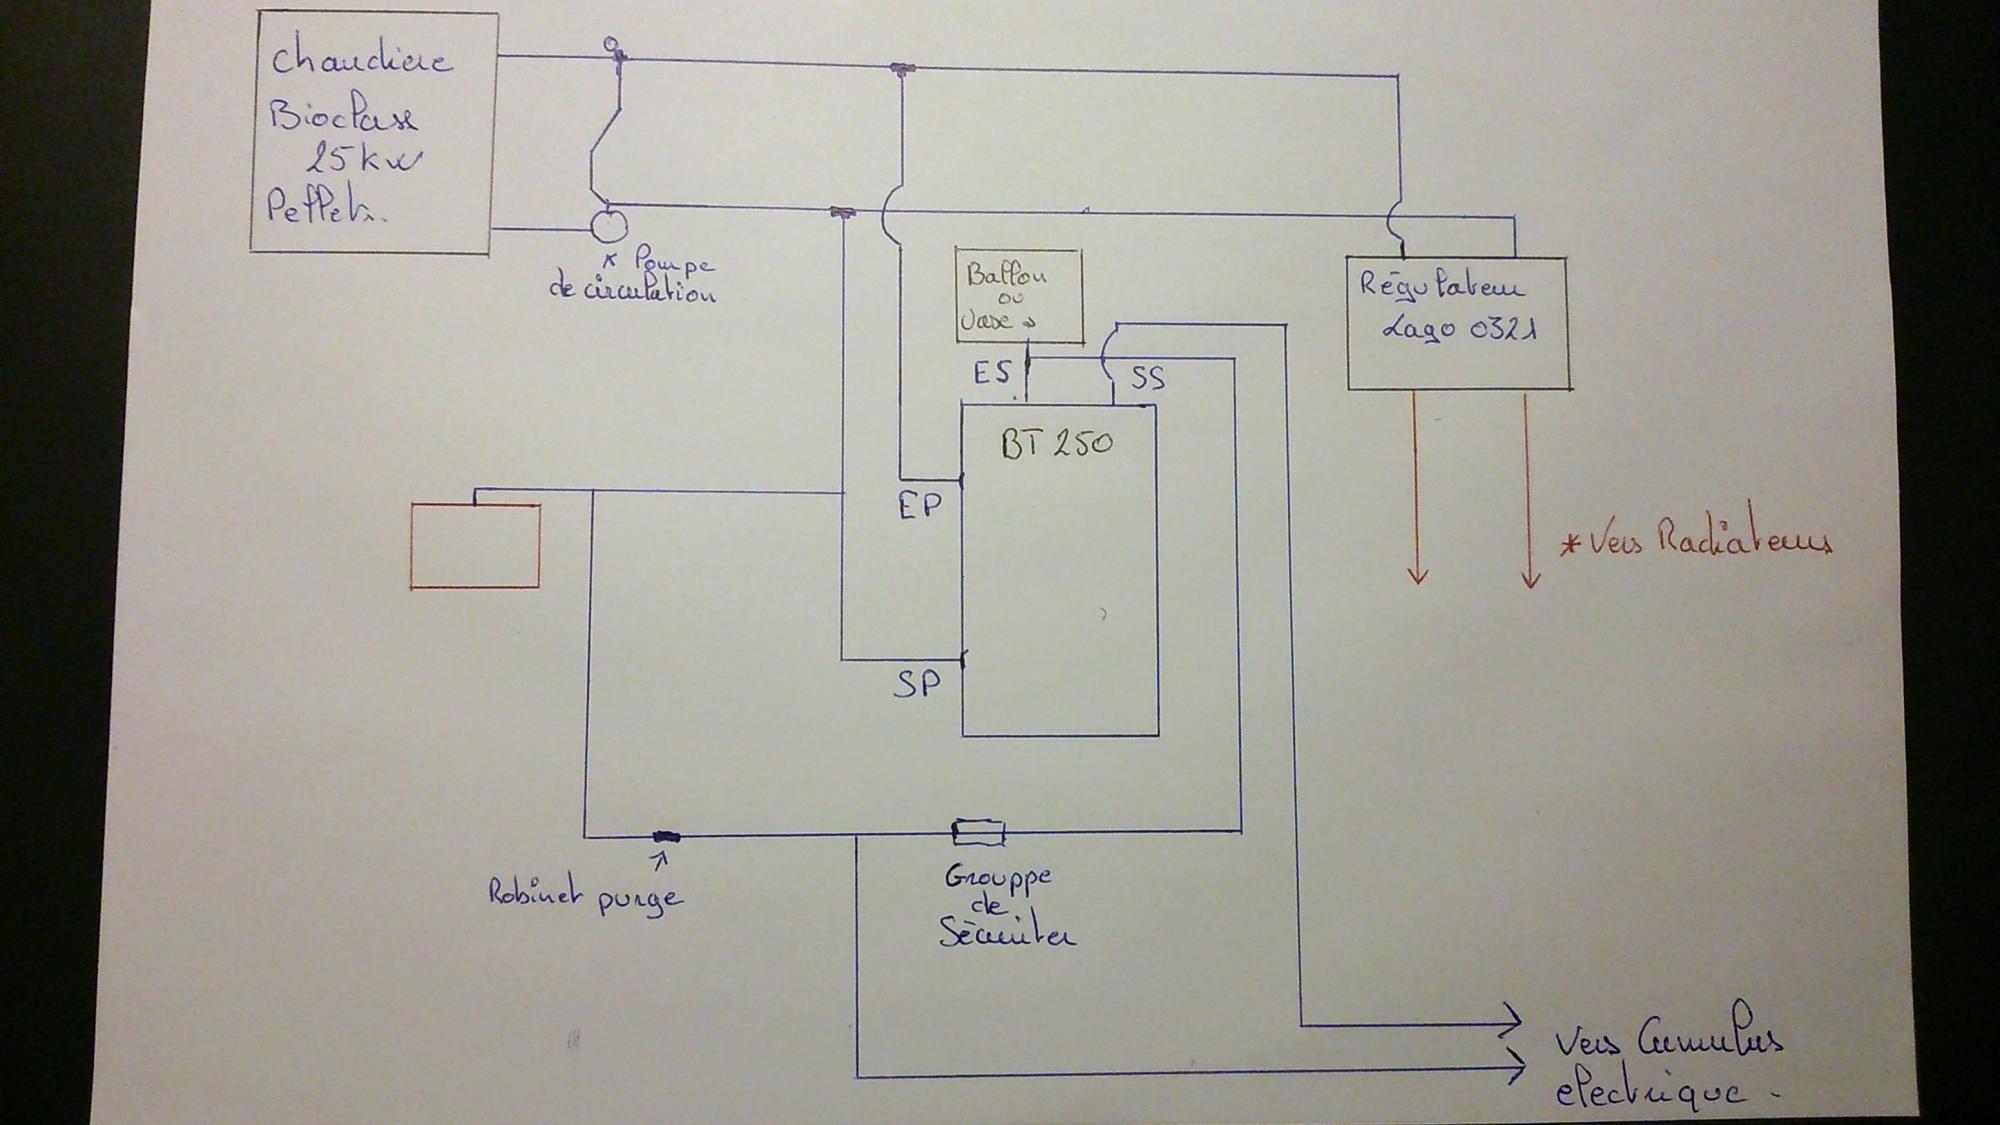 Chaudière
Bioclass
25 kw
Pellets.
* Pompe
de circulation
Ballon
ou
Vase
Régulateur
Lago 0321
ES
SS
BT 250
EP
* Vers Radiateurs
SP
Robinet purge
Grouppe
de
Sècuriter
Vers Cumulus
electrique.